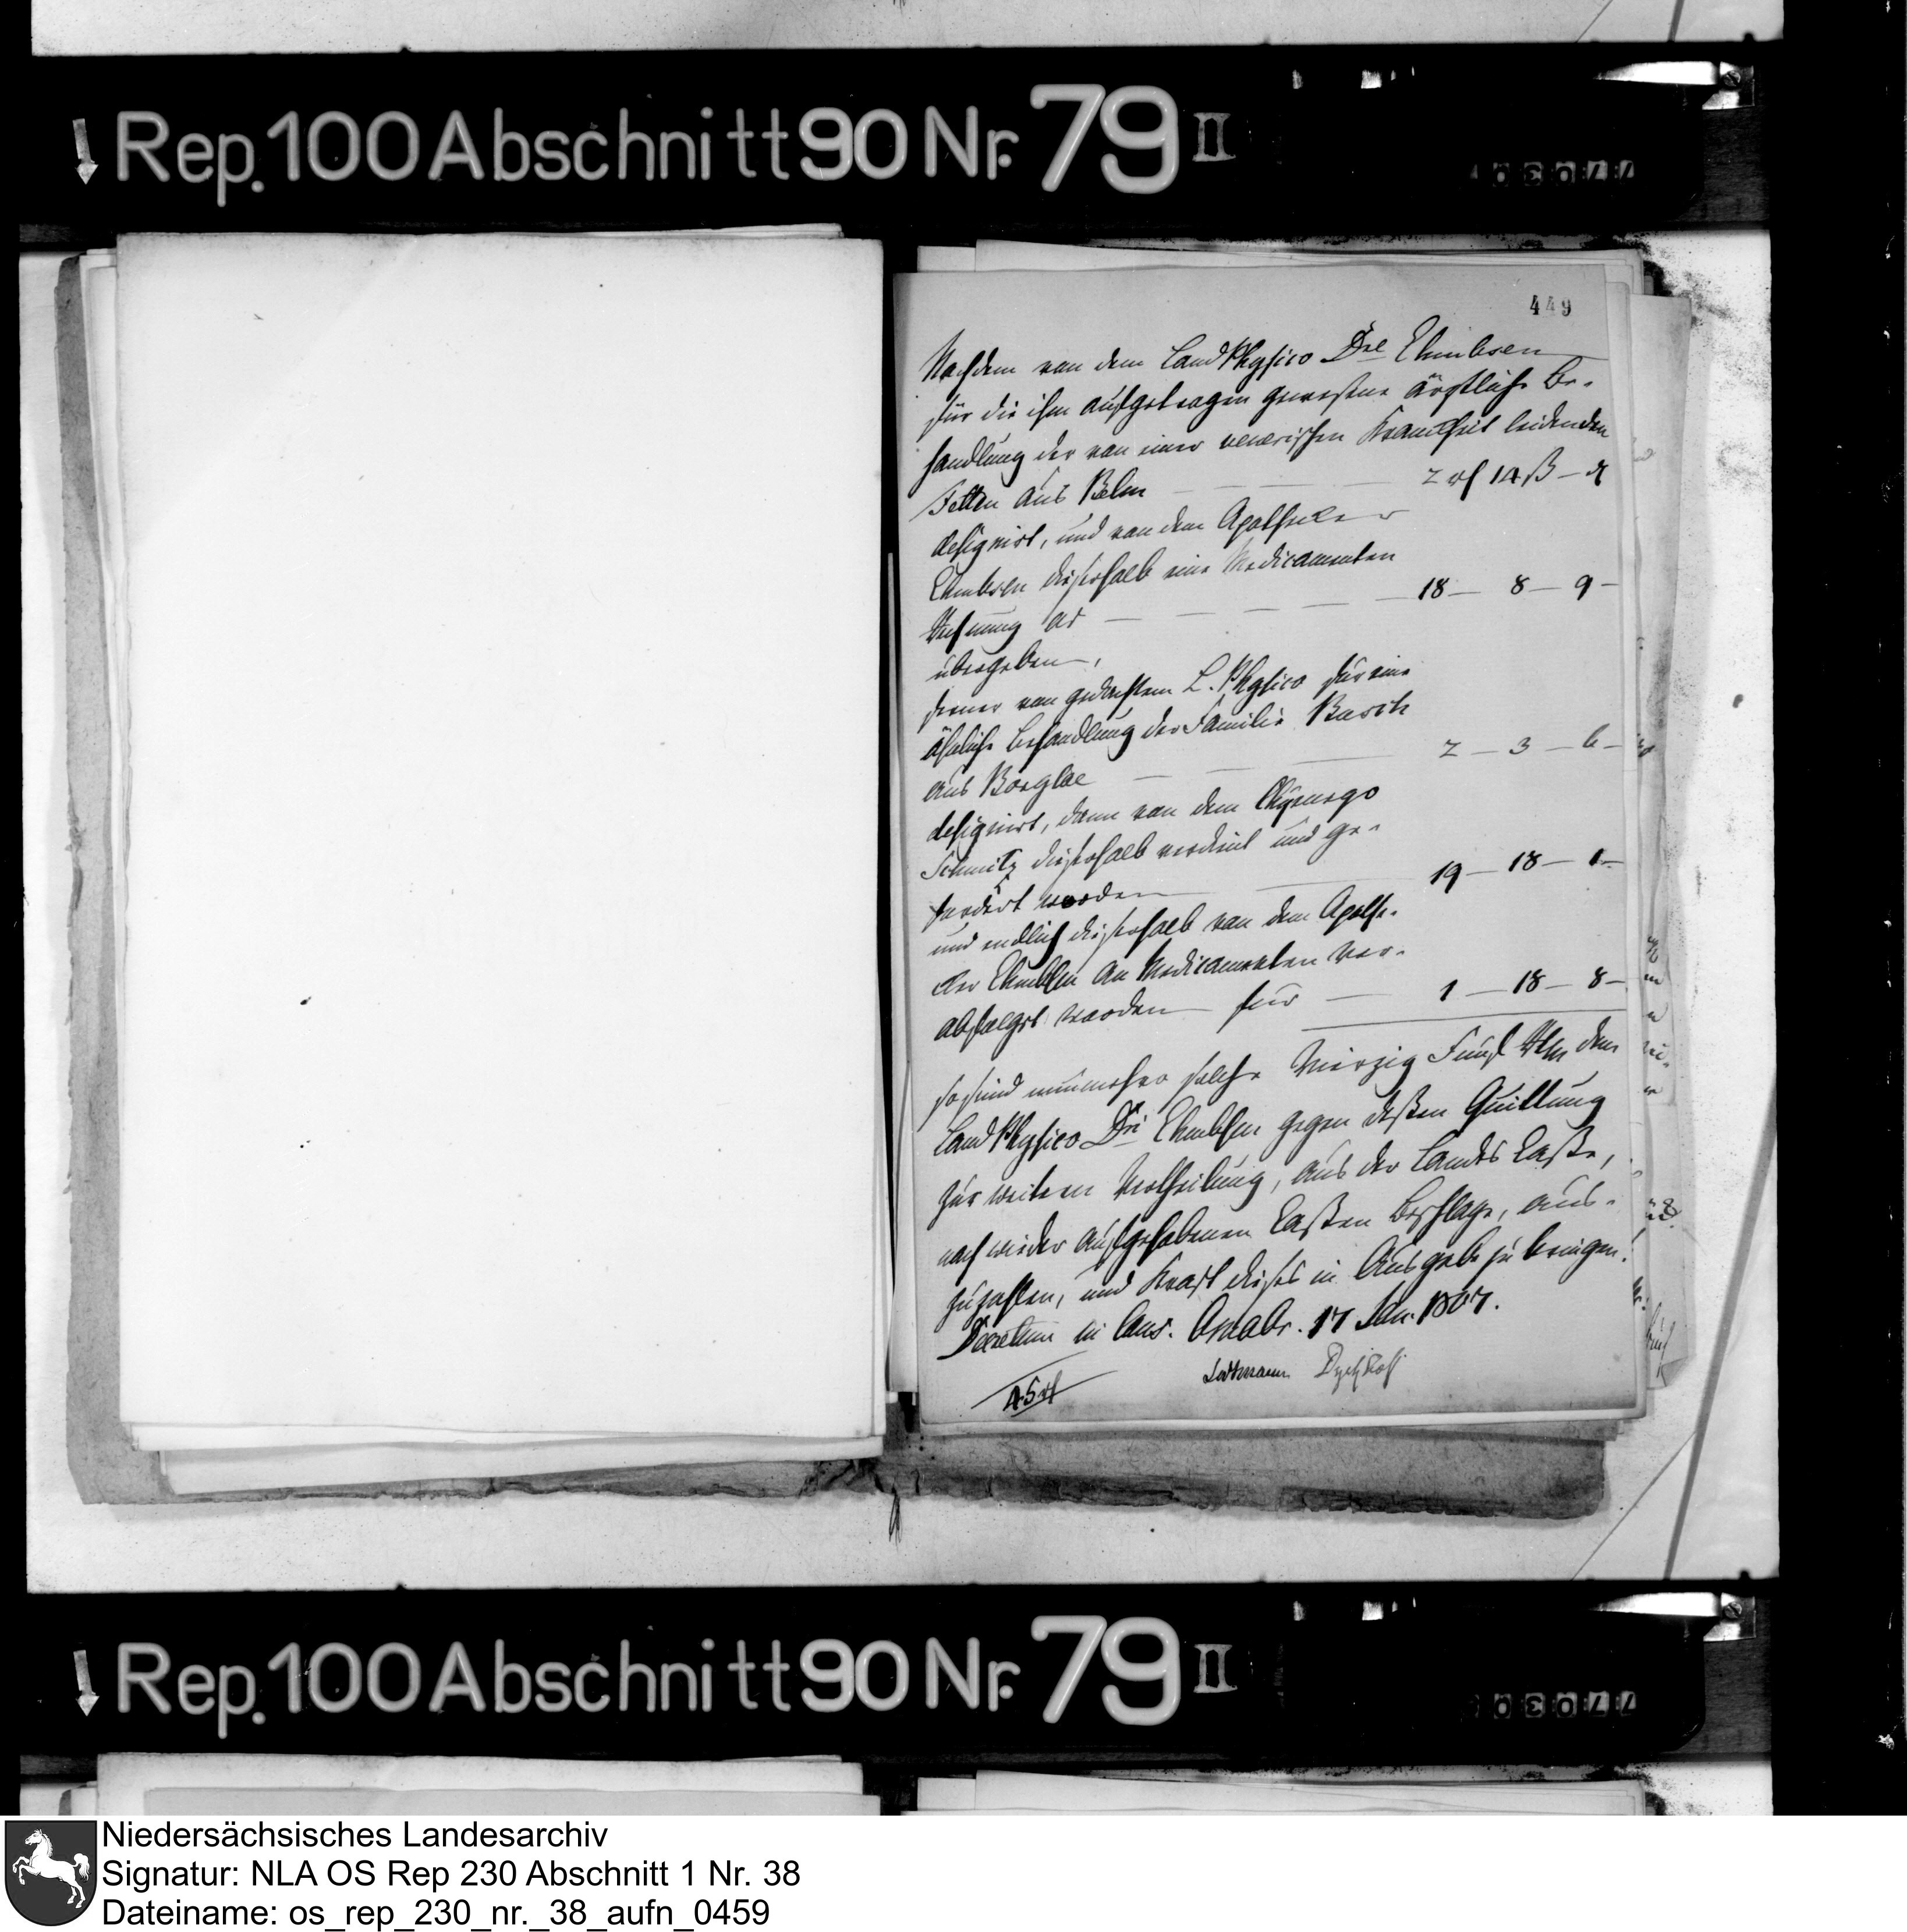 Rep. 100 Abschnitt 90 Nr. 79 II
449
Nachdem von dem LandPhysico Dre Ehmbsen
für die ihm aufgetragen gewesene ärztliche Be-
handlung der von einer venerischen Krankheit leidenden
aus Belm 2 rf 14 ß — d
designirt, und von dem Apotheker
Ehmbsen dieserhalb eine Medicamenten
Rechnung ad 18 — 8 — 9 —
übergeben,
ferner von gedachtem L. Physico für eine
ähnliche Behandlung der Familie
aus Borgloe 2 — 3 — 6 —
designirt, dann von dem Chyrurgo
Schmitz dieserhalb verdient und ge-
fordert worden 19 — 18 — 1 —
und endlich dieserhalb von dem Apothe-
ker Ehmbsen an Medicamenten ver-
abfolgt worden für 1 — 18 — 8 —
so sind nunmehro solche Vierzig Fünf Rthlr dem
LandPhysico Dri Ehmbsen gegen deßen Quittung
zur weitern Vertheilung, aus der Landes Caße,
nach wieder aufgehobenen Caßen Beschlage, aus-
zuzahlen, und Kraft dieses in Ausgabe zu bringen.
Decretum in Cons. Osnabr. 17 Jan. 1807.
45 rf
Rep. 100 Abschnitt 90 Nr. 79 II
Niedersächsisches Landesarchiv
Signatur: NLA OS Rep 230 Abschnitt 1 Nr. 38
Dateiname: os_rep_230_nr._38_aufn_0459